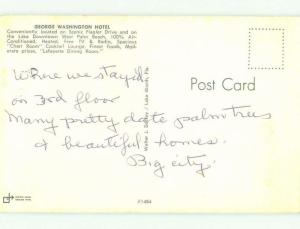 GEORGE WASHINGTON HOTEL
Conveniently located on Scenic Flagler Drive and on
the Lake Downtown West Palm Beach, 100% Air-
Conditioned, Heated, Free TV & Radio, Spacious
"Chart Room" Cocktail Lounge, Finest Foods, Mod-
erate prices, "Lafayette Dining Room."
Where we stayed
on 3rd floor
Many pretty date palm trees
& beautiful homes.
Big city.
Post Card
Lake Worth, Fla.